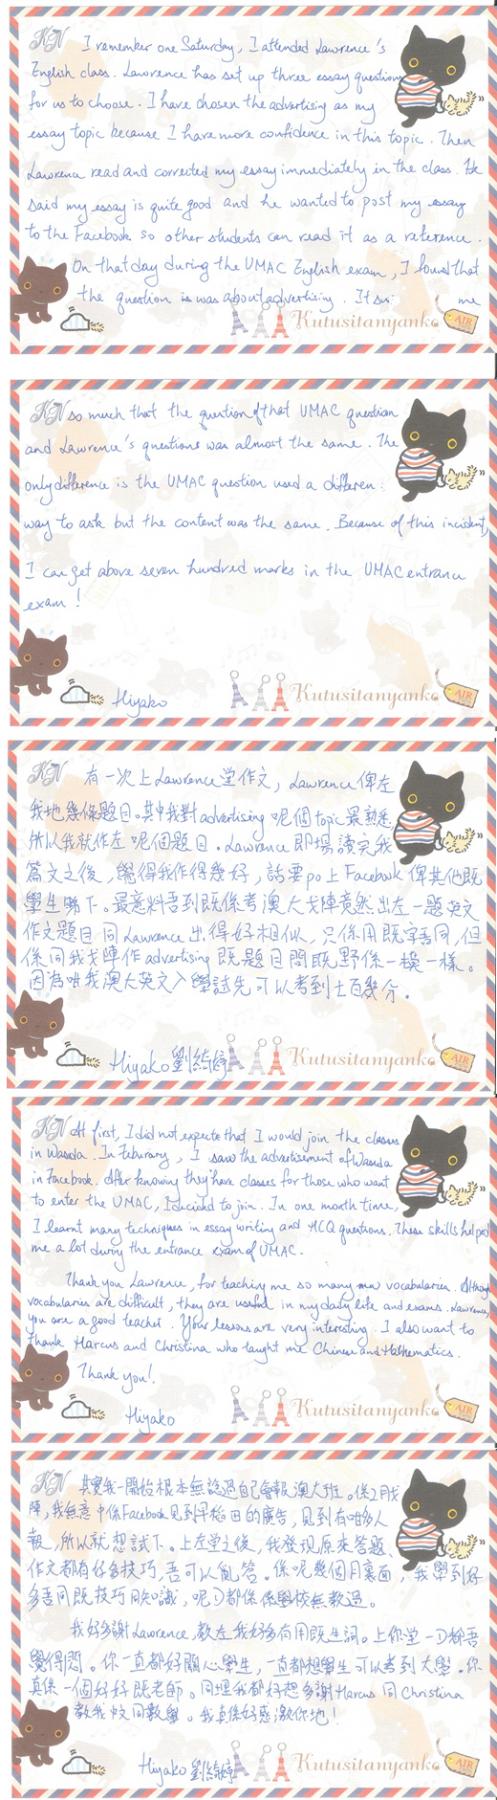 KN I remember one Saturday, I attended Lawrence's
English class. Lawrence has set up three essay questions
for us to choose. I have chosen the advertising as my
essay topic because I have more confidence in this topic. Then
Lawrence read and corrected my essay immediately in the class. He
said my essay is quite good and he wanted to post my essay
to the Facebook so other students can read it as a reference.
On that day during the UMAC English exam, I found that
the question is was about advertising. It sur me
Kutusitanyanko AIR
KN so much that the question of that UMAC question
and Lawrence's questions was almost the same. The
only difference is the UMAC question used a differen
way to ask but the content was the same. Because of this incident,
I can get above seven hundred marks in the UMAC entrance
exam!
Hiyako Kutusitanyanko AIR
KN 有一次上Lawrence堂作文，Lawrence俾左
我地幾條題目。其中我對advertising呢個topic最熟悉
所以我就作左呢個題目。Lawrence即場讀完我
篇文之後，覺得我作得幾好，話要po上Facebook俾其他既
學生睇下。最意料吾到既係考澳大戈陣竟然出左一題英文
作文題目同Lawrence出得好相似，只係用既字吾同，但
係同我戈陣作advertising既題目問既野係一模一樣。
因為咁我澳大英文入學試先可以考到七百幾分。
Hiyako 劉 Kutusitanyanko AIR
KN At first, I did not expecte that I would join the classes
in Waseda. In Feburary, I saw the advertisement of Waseda
in Facebook. After knowing they have classes for those who want
to enter the UMAC, I decided to join. In one month time,
I learnt many techniques in essay writing and MCQ questions. These skills helped
me a lot during the entrance exam of UMAC.
Thank you Lawrence, for teaching me so many new vocabularies. Although
vocabularies are difficult, they are useful in my daily life and exams. Lawrence,
you are a good teacher. Your lessons are very interesting. I also want to
thank Marcus and Christina who taught me Chinese and Mathematics.
Thank you!
Hiyako Kutusitanyanko AIR
KN 其實我一開始根本無諗過自己會報澳大班。係2月戈
陣，我無意中係Facebook見到早稻田的廣告，見到有咁多人
報，所以就想試下。上左堂之後，我發現原來答題、
作文都有好多技巧，吾可以亂答。係呢幾個月裏面，我學到好
多吾同既技巧同知識，呢D都係係學校無教過。
我好多謝Lawrence，教左我好多有用既生詞。上你堂一D都吾
覺得悶。你一直都好關心學生，一直都想學生可以考到大學。你
真係一個好好既老師。同埋我都好想多謝Marcus同Christina
教我中文同數學。我真係好感激你地！
Hiyako 劉 Kutusitanyanko AIR